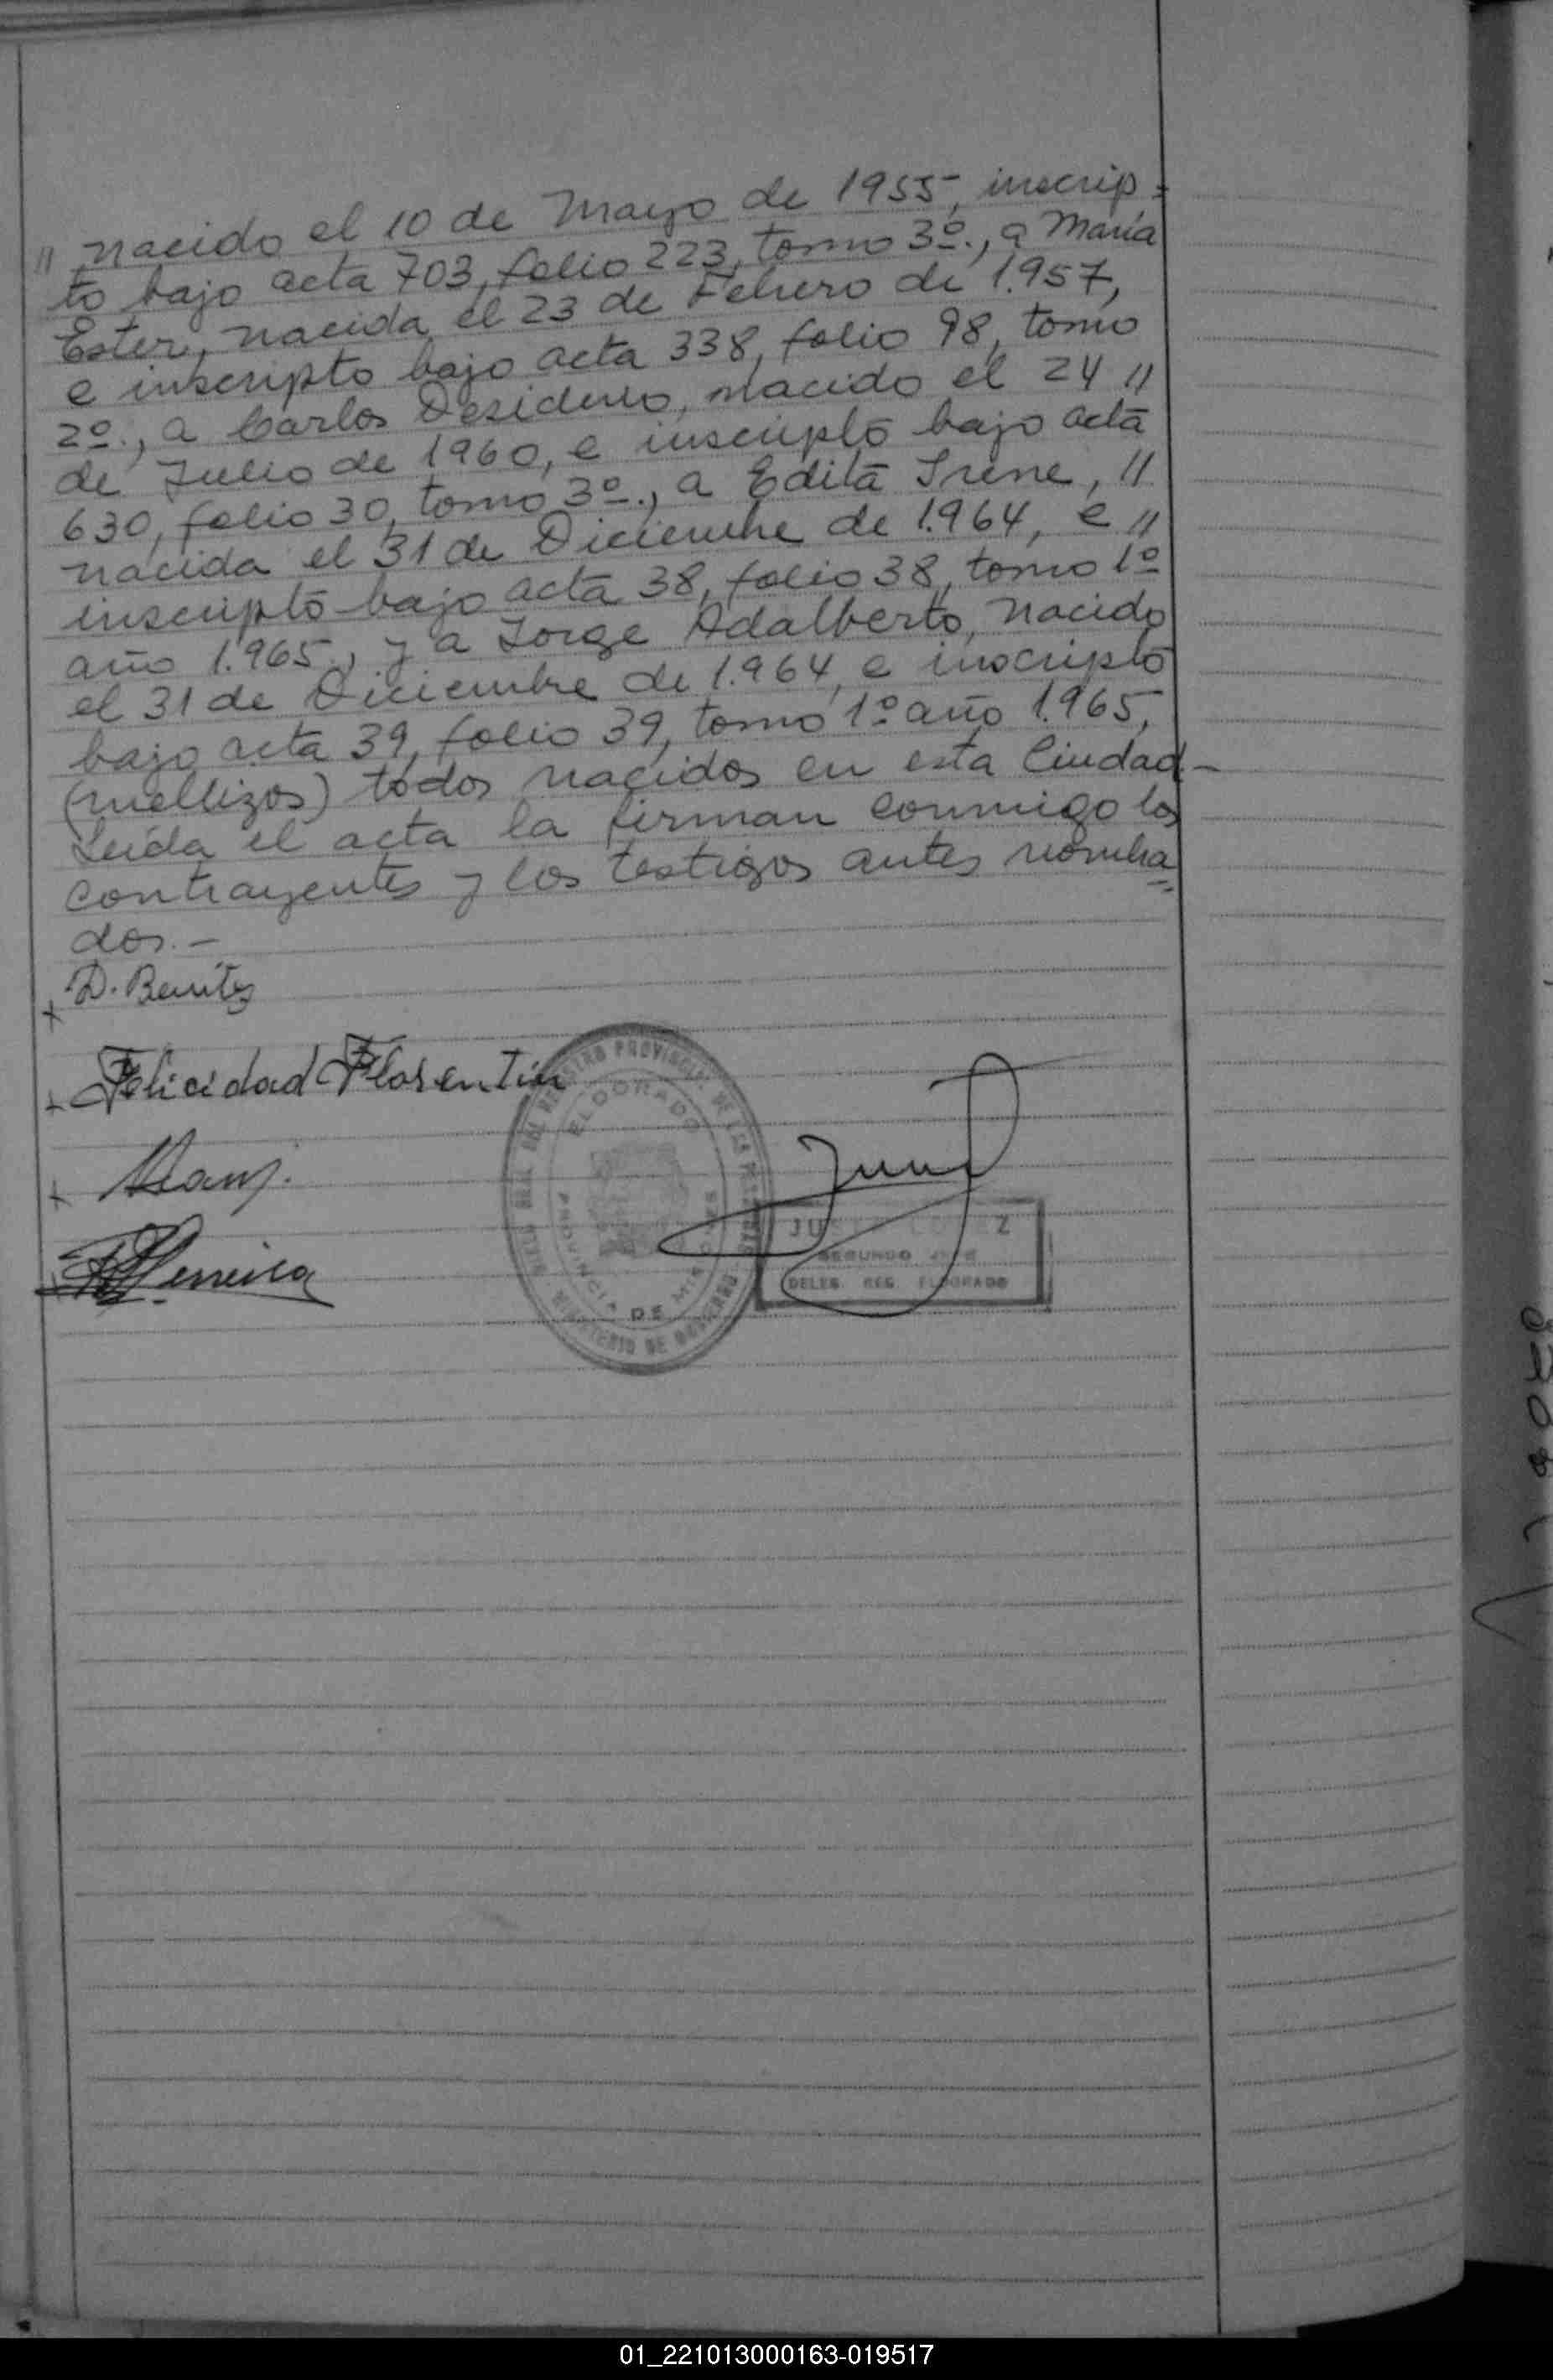 // nacido el 10 de Mayo de 1955, inscrip=
to bajo acta 703, folio 223, tomo 3º., a María
Ester, nacida el 23 de Febrero de 1.957,
e inscripto bajo acta 338, folio 98, tomo
2º., a Carlos Desiderio, nacido el 24 //
de Julio de 1960, e inscripto bajo acta
630, folio 30, tomo 3º., a Edita Irene, //
nacida el 31 de Diciembre de 1.964, e //
inscripto bajo acta 38, folio 38, tomo 1º
año 1.965., y a Jorge Adalberto, nacido
el 31 de Diciembre de 1.964, e inscripto
bajo acta 39, folio 39, tomo 1º año 1.965,
(mellizos) todos nacidos en esta Ciudad.-
Leída el acta la firman conmigo los
contrayentes y los testigos antes nombra=
dos.-
x D. Benítez
x Felicidad Florentin
REGISTRO PROVINCIAL DE LAS PERSONAS
ELDORADO
PROVINCIA DE MISIONES
MINISTERIO DE GOBIERNO
SEGUNDO JEFE
DELEG. REG. ELDORADO
01_221013000163-019517